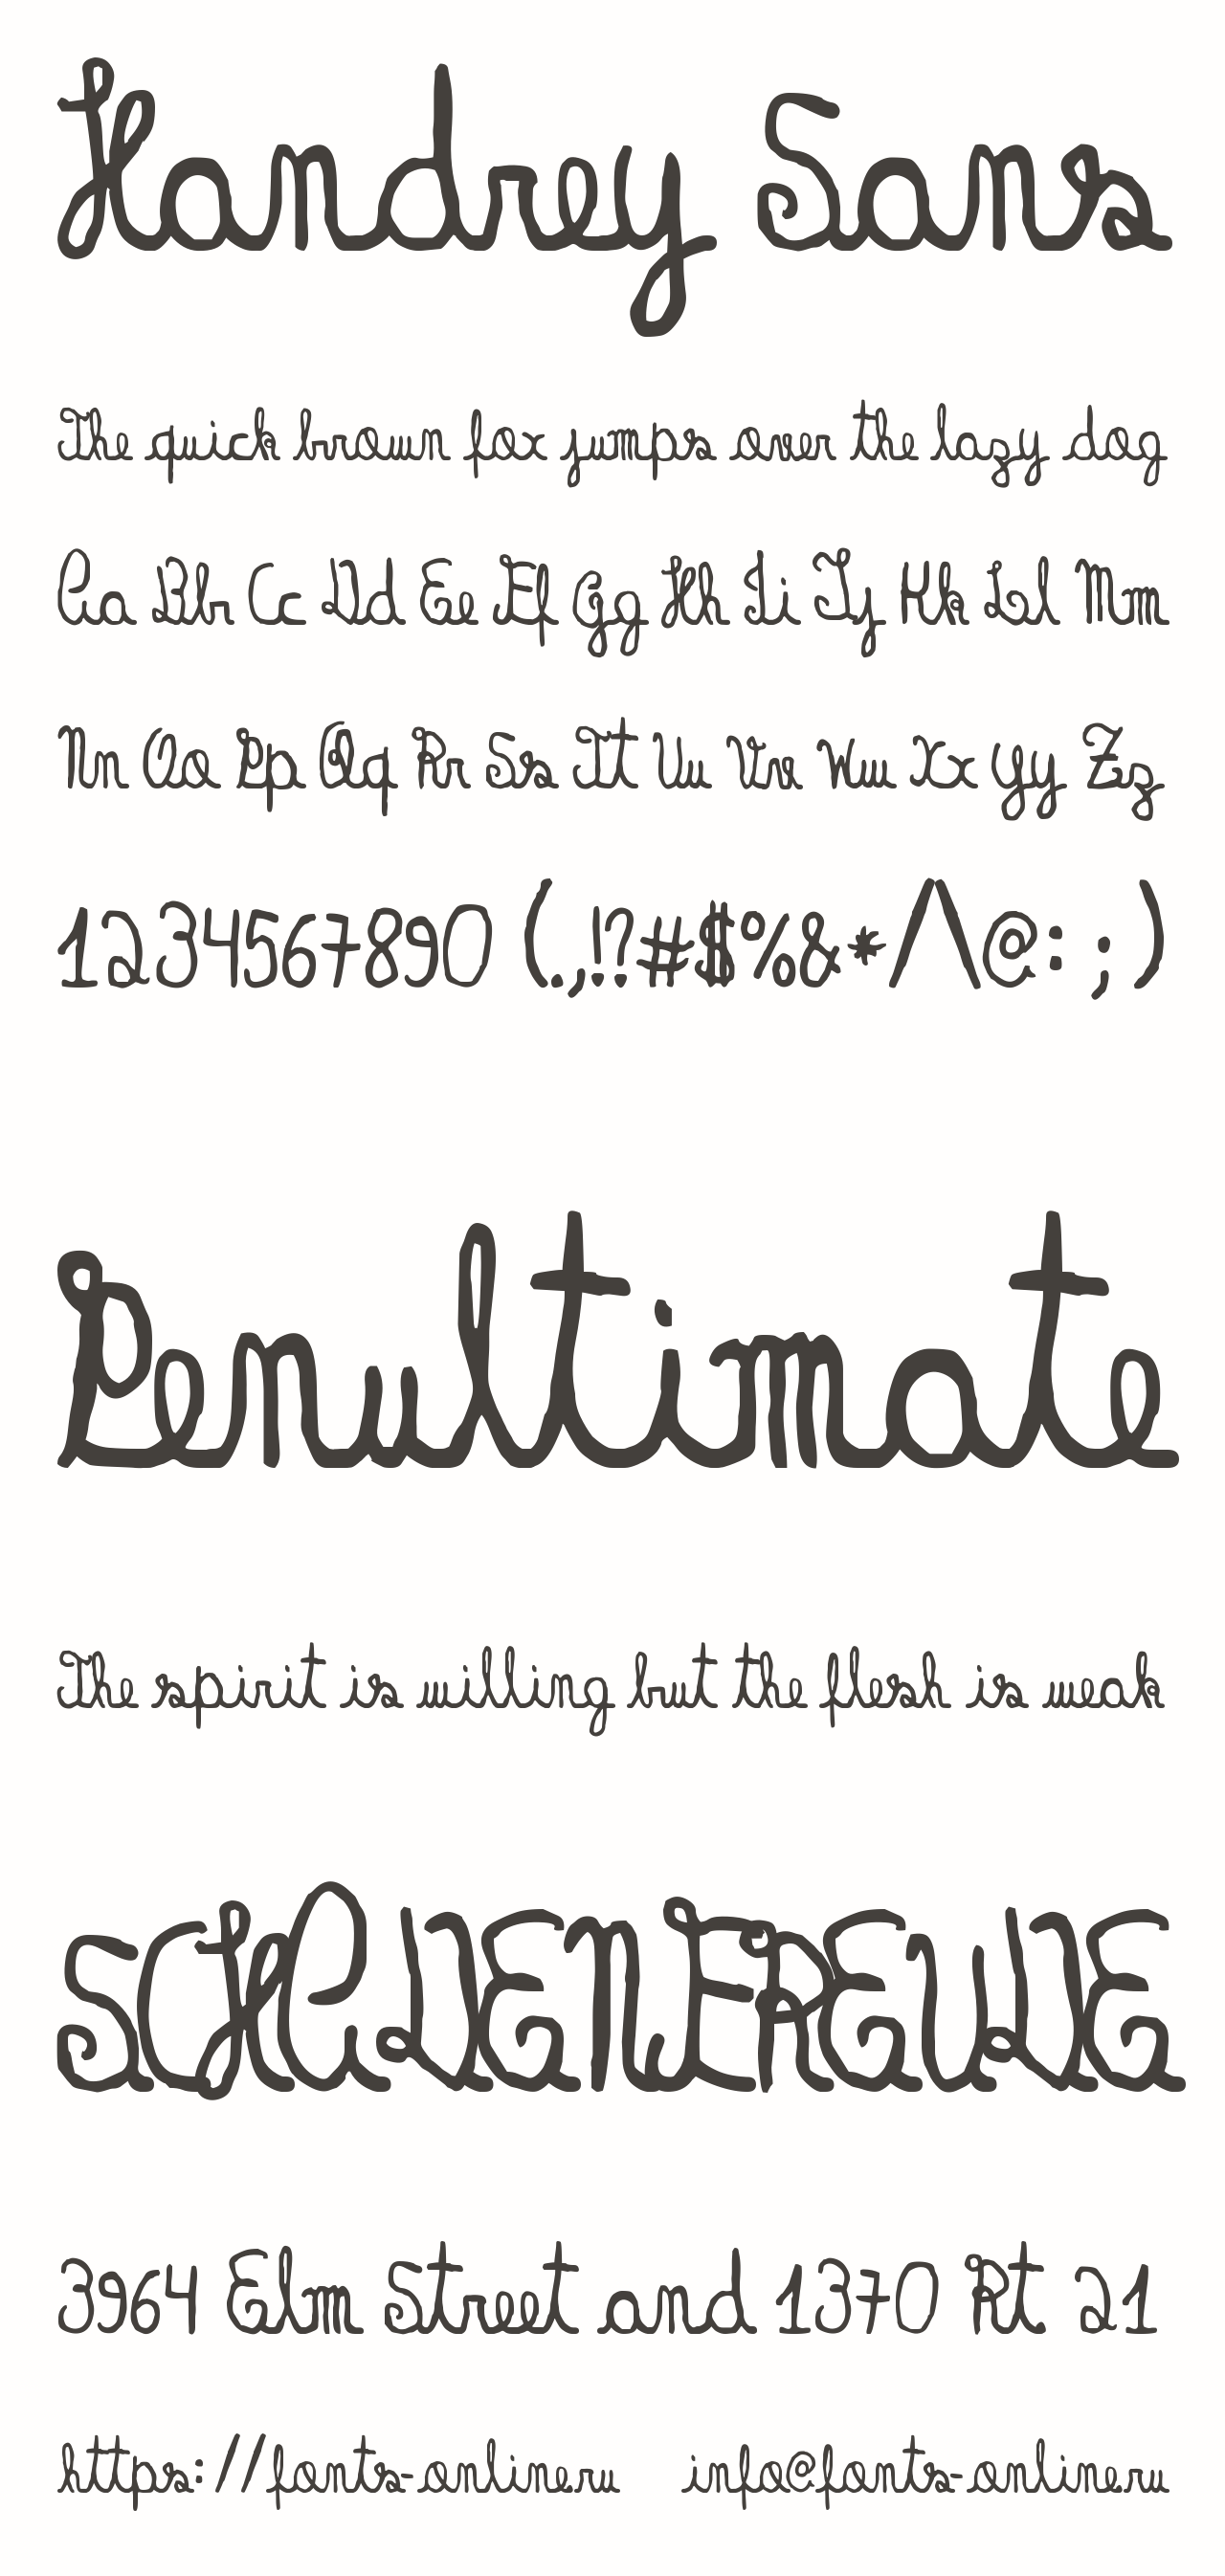 Handrey Sans
The quick brown fox jumps over the lazy dog
Aa Bb Cc Dd Ee Ff Gg Hh Ii Jj Kk Ll Mm
Nn Oo Pp Qq Rr Ss Tt Uu Vv Ww Xx Yy Zz
1234567890 (.,!?#$%&*/\@: ;)
Penultimate
The spirit is willing but the flesh is weak
SCHADENFREUDE
3964 Elm Street and 1370 Rt 21
https://fonts-online.ru info@fonts-online.ru